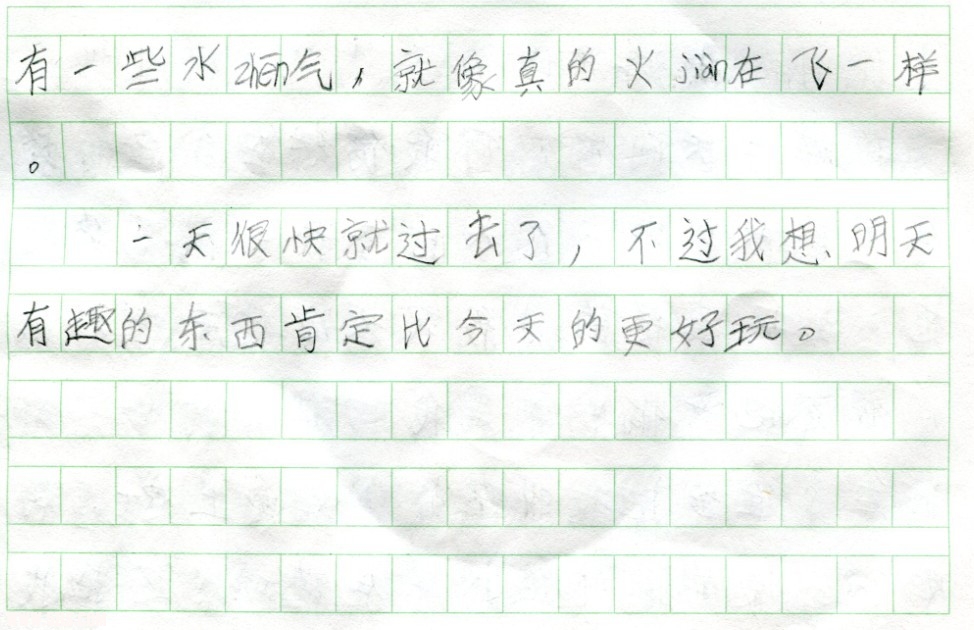 有一些水zhen气，就像真的火jian在飞一样
。
一天很快就过去了，不过我想、明天
有趣的东西肯定比今天的更好玩。